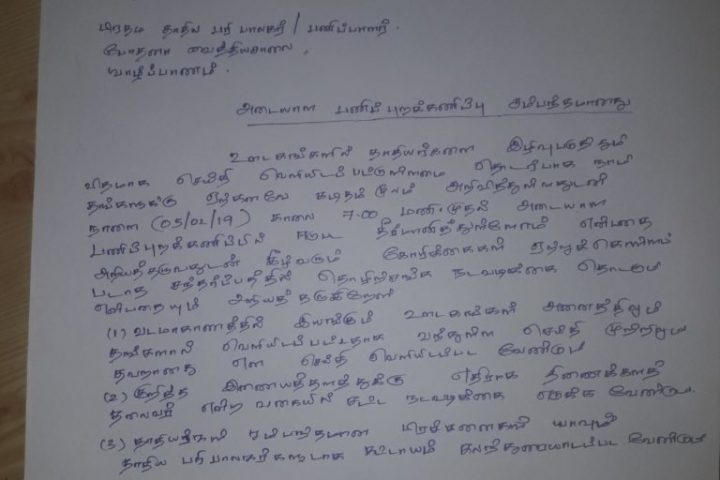 பிரதம தாதிய பரிபாலகரி / பணிப்பாளரி
போதனா வைத்தியசாலை,
யாழ்ப்பாணம்.
அடையாள பணிப்புறக்கணிப்பு சம்பந்தமானது
ஊடகங்களில் தாதியர்களை இழிவுபடுத்தும்
விதமாக செய்தி வெளியிடப்பட்டுள்ளமை தொடர்பாக நாம்
தங்களுக்கு ஏற்கனவே கடிதம் மூலம் அறிவித்துள்ளதுடன்
நாளை (05/02/19) காலை 7.00 மணிமுதல் அடையாள
பணிப்புறக்கணிப்பில் ஈடுபட தீர்மானித்துள்ளோம் என்பதை
அறியத்தருவதுடன் கீழ்வரும் கோரிக்கைகள் ஏற்றுக்கொள்ளப்
படாத சந்தர்ப்பத்தில் தொழிற்சங்க நடவடிக்கை தொடரும்
என்பதையும் அறியத் தருகிறேன்
(1) வடமாகாணத்தில் இயங்கும் ஊடகங்கள் அனைத்திலும்
தங்களால் வெளியிடப்பட்டதாக வந்துள்ள செய்தி முற்றிலும்
தவறானது என செய்தி வெளியிடப்பட வேண்டும்
(2) குறித்த இணையத்தளத்துக்கு எதிராக திணைக்களத்
தலைவர் என்ற வகையில் சட்ட நடவடிக்கை எடுக்க வேண்டும்.
(3) தாதியர்கள் சம்பந்தமான பிரச்சினைகள் யாவும்
தாதிய பரிபாலகர்களூடாக கட்டாயம் கலந்துரையாடப்பட வேண்டும்